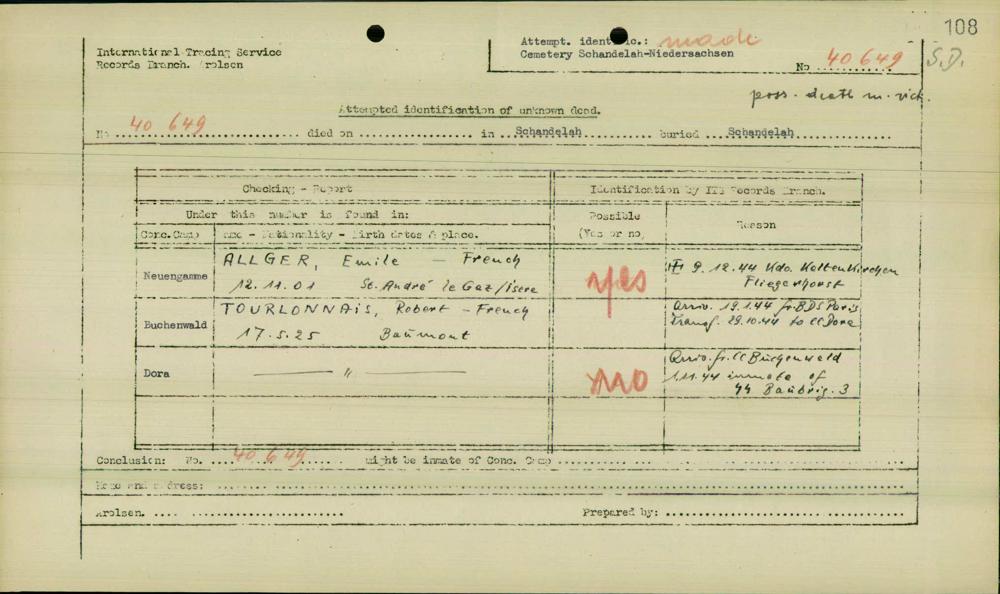 108
International Tracing Service
Records Branch. Arolsen
Attempt. ident. No.: made
Cemetery Schandelah-Niedersachsen
No 40 649
S.D.
poss. death m. rick.
Attempted identification of unknown dead.
No 40 649 died on in Schandelah buried Schandelah
Checking - Report
Identification by ITS Records Branch.
Under this number is found in:
Possible
(Yes or no)
Reason
Conc.Camp
Name - Nationality - Birth dates & place.
Neuengamme
ALLGER, Emile — French
12.11.01 St. André le Gaz/Isere
yes
9.12.44 Kdo. Kaltenkirchen
Fliegerhorst
Buchenwald
TOURLONNAIS, Robert - French
17.5.25 Baumont
Arriv. 19.1.44 fr. BDS Paris
Transf. 29.10.44 to CC Dora
Dora
— " —
no
Arriv. fr. CC Buchenwald
1.11.44 inmate of
SS Baubrig. 3
Conclusion: No. 40 649 might be inmate of Conc. Camp
Name and address:
Arolsen.
Prepared by: